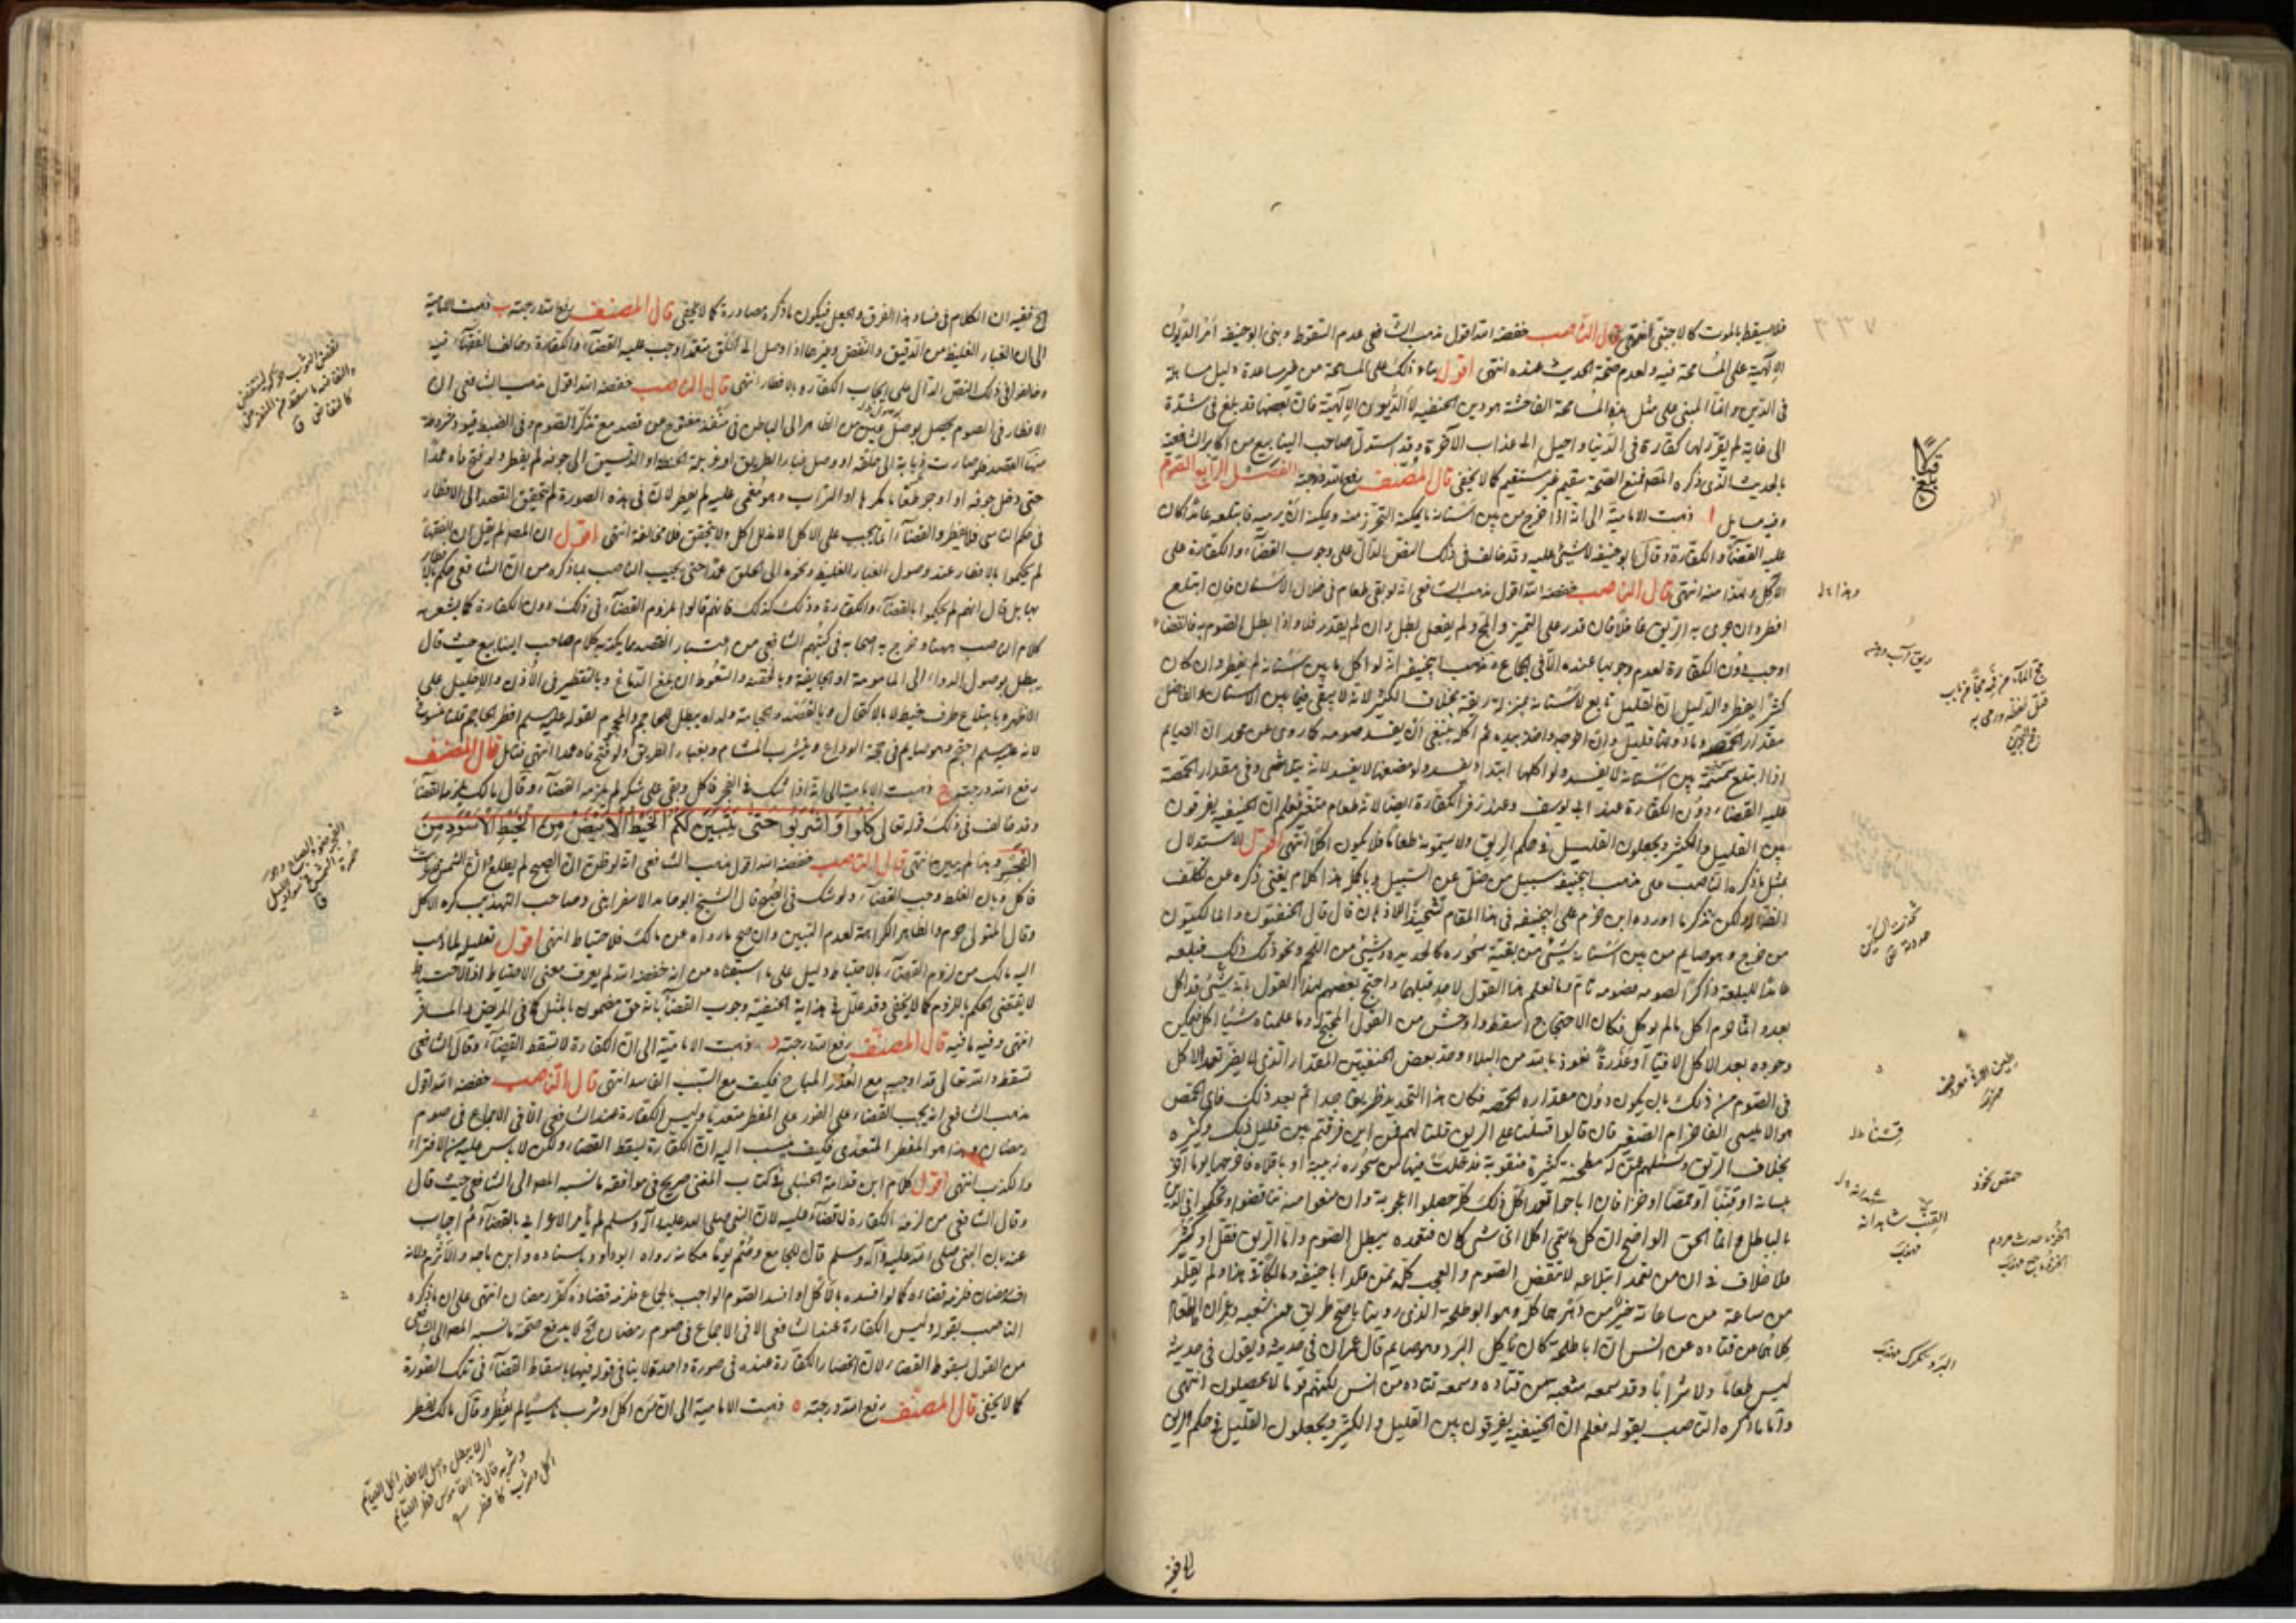 ٣٣٧
فلا يسقط بالموت كالاجنبي انتهى قال الناصب خفضه الله اقول مذهب الشافعي عدم السقوط وبنى ابو حنيفة امر الديون
الالهية على المسامحة فيه ولعدم صحة الحديث عنده انتهى اقول بناء ذلك على المسامحة من غير مساعدة دليل مساهلة
في الدين وانما المبني على مثل هذه المسامحة الفاحشة هو دين الحنفية لا الديون الالهية فان بعضها قد بلغ في شدة
الى غاية لم يقرر لها كفارة في الدنيا واحيل الى عذاب الآخرة وقد استدل صاحب الينابيع من اكابر الشافعية
بالحديث الذي ذكره المصنف فمنع الصحة سقيم غير مستقيم كما لا يخفى قال المصنف رفع الله درجته الفصل الرابع الصوم
وفيه مسايل ا ذهبت الامامية الى انه اذا خرج من بين اسنانه ما يمكنه التحرز منه ويمكنه ان يرميه فابتلعه عامدا كان
عليه القضاء والكفارة وقال ابو حنيفة لا شيء عليه وقد خالف في ذلك النص الدال على وجوب القضاء والكفارة على
الآكل وهذا منه انتهى قال الناصب خفضه الله اقول مذهب الشافعي انه لو بقي طعام في خلال الاسنان فان ابتلع
افطر وان جرى به الريق غافلا فان قدر على التميز والمج ولم يفعل بطل وان لم يقدر فلا واذا بطل الصوم به فالقضاء
اوجب دون الكفارة لعدم وجوبها عنده الا في الجماع ومذهب ابي حنيفة انه لو اكل ما بين اسنانه لم يفطر وان كان
كثيرا يفطر والدليل ان القليل تابع لاسنانه بمنزلة ريقه بخلاف الكثير لانه لا يبقى فيما بين الاسنان والفاصل
مقدار الحمصة وما دونها قليل وان اخرجه واخذ بيده ثم اكله ينبغي ان يفسد صومه كما روي عن محمد ان الصايم
اذا ابتلع سمسمة بين اسنانه لا يفسد ولو اكلها ابتداء يفسد ولو مضغها لا يفسد لانه يتلاشى وفي مقدار الحمصة
عليه القضاء دون الكفارة عند ابي يوسف وعند زفر الكفارة ايضا لانه طعام متغير فعلم ان الحنفية يفرقون
بين القليل والكثير ويجعلون القليل في حكم الريق ولا يسمونه طعاما فلا يكون اكلا انتهى اقول الاستدلال
بمثل ما ذكره الناصب على مذهب ابي حنيفة سبيل من ضل عن السبيل وبالكل هذا كلام يغني ذكره عن تكلف
النقض لكن نذكر ما اورده ابن حزم على ابي حنيفة في هذا المقام تشحيذا للاذهان قال قال الحنفيون والمالكيون
من خرج وهو صايم من بين اسنانه شيء من بقية سحوره كالجذيذة وشيء من اللحم ونحو ذلك فبلعه
عامدا لبلعه ذاكرا لصومه فصومه تام وما نعلم هذا القول لاحد قبلهما واحتج بعضهم لهذا القول بانه شيء قد اكل
بعد وانما حرم اكل ما لم يوكل فكان الاحتجاج اسقط واوحش من القول المحتج له وما علمنا شيئا اكل فيمكن
وجوده بعد الاكل الا قيئا او عذرة نعوذ بالله من البلاء وحد بعض الحنفيين المقدار الذي لا يضر تعمد الاكل
في الصوم من ذلك بان يكون دون مقدار الحمصة فكان هذا التحديد ظريفا جدا ثم بعد ذلك فاي الحمص
هو الامليسي الفاخر ام الصغير فان قالوا قسناه على الريق قلنا لهم فمن اين فرقتم بين قليل ذلك وكثيره
بخلاف الريق ونسئلهم عمن له مطحنة كبيرة مثقوبة فدخلت فيها من سحوره زبيبة او باقلاه فاخرجها يوما آخر
بلسانه
بالباطل واما الحق الواضح ان كل ما سمي اكلا اي شيء كان فتعمده يبطل الصوم واما الريق فقل او كثر
فلا خلاف في ان من تعمد ابتلاعه لا ينقض الصوم والعجب كله ممن قلد ابا حنيفة ومالكا في هذا ولم يقلد
من ساعة من ساعاته خير من دهرهما كله وهو ابو طلحة الذي روينا باصح طريق عن شعبة وعمران القطان
كلاهما عن قتادة عن انس ان ابا طلحة كان ياكل البرد وهو صايم قال عمران في حديثه ويقول في حديثه
ليس طعاما ولا شرابا وقد سمعه شعبة من قتادة وسمعه قتادة من انس لكنهم قوم لا يحصلون انتهى
واما ما ذكره الناصب بقوله فعلم ان الحنفية يفرقون بين القليل والكثير ويجعلون القليل في حكم الريق
القنب شاهدانه
مهذب
حمص نخود
البرد تكرك مهذب
الخ ففيه ان الكلام في فساد هذا الفرق والجعل فيكون ما ذكره مصادرة كما لا يخفى قال المصنف رفع الله درجته ب ذهبت الامامية
الى ان الغبار الغليظ من الدقيق والنفض وغيرهما اذا وصل الى الحلق متعمدا وجب عليه القضاء والكفارة وخالف الفقهاء فيه
وخالفوا في ذلك النص الدال على ايجاب الكفارة بالافطار انتهى قال الناصب خفضه الله اقول مذهب الشافعي ان
الافطار في الصوم يحصل بوصول عين من الظاهر الى الباطن في منفذ مفتوح عن قصد مع تذكر الصوم وفي الضبط قيود وخرج
منها القصد فلو صارت ذبابة الى حلقه او وصل غبار الطريق او غربلة الحنطة او الدقيق الى جوفه لم يفطر ولو فتح فاه عمدا
حتى دخل جوفه او اوجر طعاما مكرها او التراب وهو مغمى عليه لم يفطر لان في هذه الصورة لم يتحقق القصد الى الافطار
في حكم الناسي فلا يفطر والقضاء انما يجب على الاكل الا بدليل اكل ولا يتحقق فلا مخالفة انتهى اقول ان المصنف لم يقل ان الفقهاء
لم يحكموا بالافطار عند وصول الغبار الغليظ ونحوه الى الحلق عمدا حتى يجيب الناصب بما ذكره من ان الشافعي حكم بالافطار
بها بل قال انهم لم يحكموا بالقضاء والكفارة وذلك كذلك فانهم قالوا بلزوم القضاء في ذلك دون الكفارة كما يشعر به
كلام الناصب ههنا وصرح به اصحابه في كتبهم الشافعي من اعتبار القصد ما يكذبه كلام صاحب الينابيع حيث قال
يبطل بوصول الدواء الى المامومة او الجايفة وبالحقنة والسعوط ان بلغ الدماغ وبالتقطير في الاذن والاحليل على
الاظهر وبابتلاع طرف خيط لا بالاكتحال وبالفصد والحجامة
لانه عليه السلام احتجم وهو صايم في حجة الوداع وبشرب المشام وبغبار الطريق ولو فتح فاه عمدا انتهى فتامل قال المصنف
رفع الله درجته ج ذهبت الامامية الى انه اذا شك في الفجر فاكل وبقي على شكه لم يلزمه القضاء وقال مالك يلزمه القضاء
وقد خالف في ذلك قوله تعالى كلوا واشربوا حتى يتبين لكم الخيط الابيض من الخيط الاسود من
الفجر وهذا لم يتبين انتهى قال الناصب خفضه الله اقول مذهب الشافعي انه لو ظن ان الصبح لم يطلع او ان الشمس غربت
فاكل وبان الغلط وجب القضاء ولو شك في الصبح قال الشيخ ابو حامد الاسفرايني وصاحب التهذيب كره الاكل
وقال المتولي حرم والظاهر الكراهة لعدم التبين وان صح ما رواه عن مالك فلاحتياط انتهى اقول تعليل لما ذهب
اليه مالك من لزوم القضاء بالاحتياط دليل على ما استفدناه من انه خفضه الله لم يعرف معنى الاحتياط اذ الاحتياط
لا يقتضي الحكم باللزوم كما لا يخفى وقد علل في هداية الحنفية وجوب القضاء بانه حق مضمون بالمثل كما في المريض والمسافر
انتهى وفيه ما فيه قال المصنف رفع الله درجته د ذهبت الامامية الى ان الكفارة لا تسقط القضاء وقال الشافعي
تسقط والله تعالى قد اوجبه مع العذر المباح فكيف مع السبب الفاسد انتهى قال الناصب خفضه الله اقول
مذهب الشافعي انه يجب القضاء على الفور على المفطر متعديا وليس الكفارة عند الشافعي الا في الجماع في صوم
رمضان وهذا هو المفطر المتعدي فكيف ينسب اليه ان الكفارة يسقط القضاء ولكن لا باس عليه من الافتراء
والكذب انتهى اقول كلام ابن قدامة الحنبلي في كتاب المغني صريح في موافقة ما نسبه المصنف الى الشافعي حيث قال
وقال الشافعي من لزمته الكفارة لا قضاء عليه لان النبي صلى الله عليه وآله وسلم لم يأمر الاعرابي بالقضاء ثم اجاب
عنه بان النبي صلى الله عليه وآله وسلم قال للمجامع وصم يوما مكانه رواه ابو داود باسناده وابن ماجه والاثرم ولانه
افسد رمضان فلزمه قضاءه كما لو افسده بالاكل او افسد الصوم الواجب بالجماع فلزمه قضاؤه كغير رمضان انتهى على ان ما ذكره
الناصب بقوله وليس الكفارة عند الشافعي الا في الاجماع في صوم رمضان الخ لا يدفع صحة ما نسبه المصنف الى الشافعي
من القول بسقوط القضاء لان انحصار الكفارة عنده في صورة واحدة لا ينافي قوله فيها باسقاط القضاء في تلك الصورة
كما لا يخفى قال المصنف رفع الله درجته ه ذهبت الامامية الى ان من اكل او شرب ناسيا لم يفطر وقال مالك يفطر